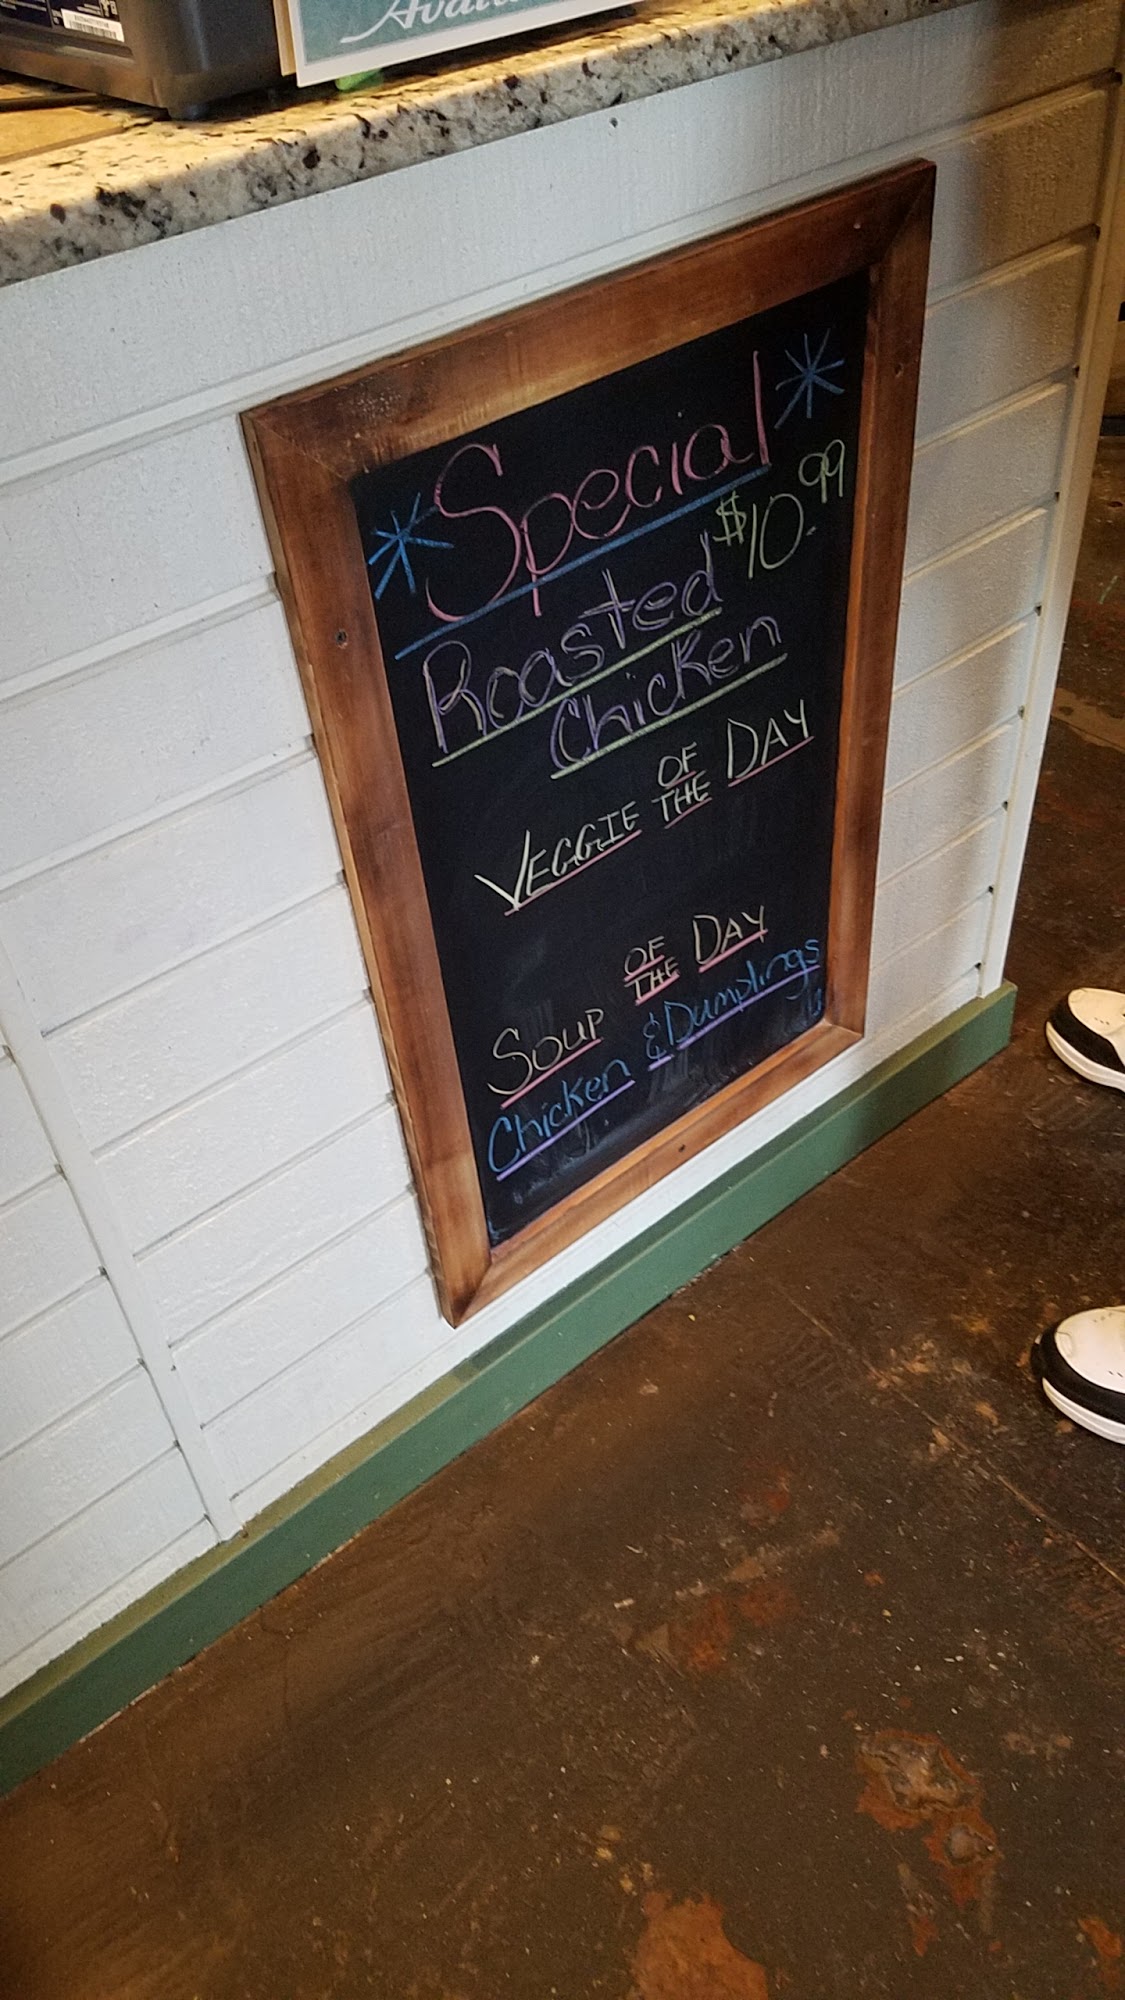 * Special *
$10.99
Roasted
Chicken
VEGGIE OF THE DAY
SOUP OF THE DAY
Chicken & Dumplings